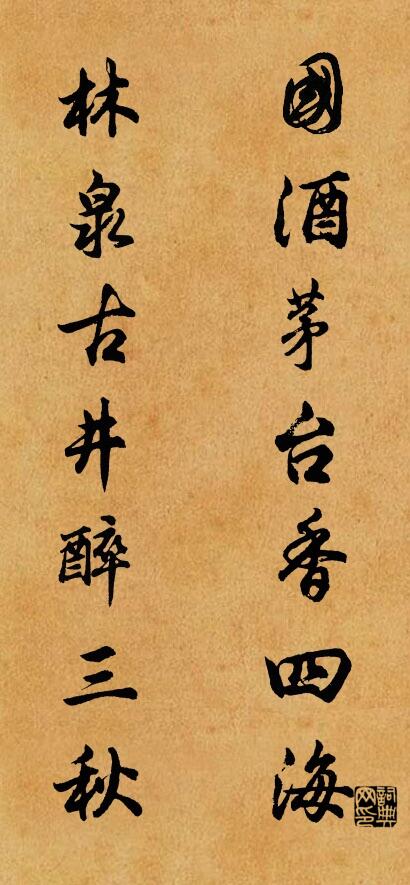 國酒茅台香四海
林泉古井醉三秋
詞典网印